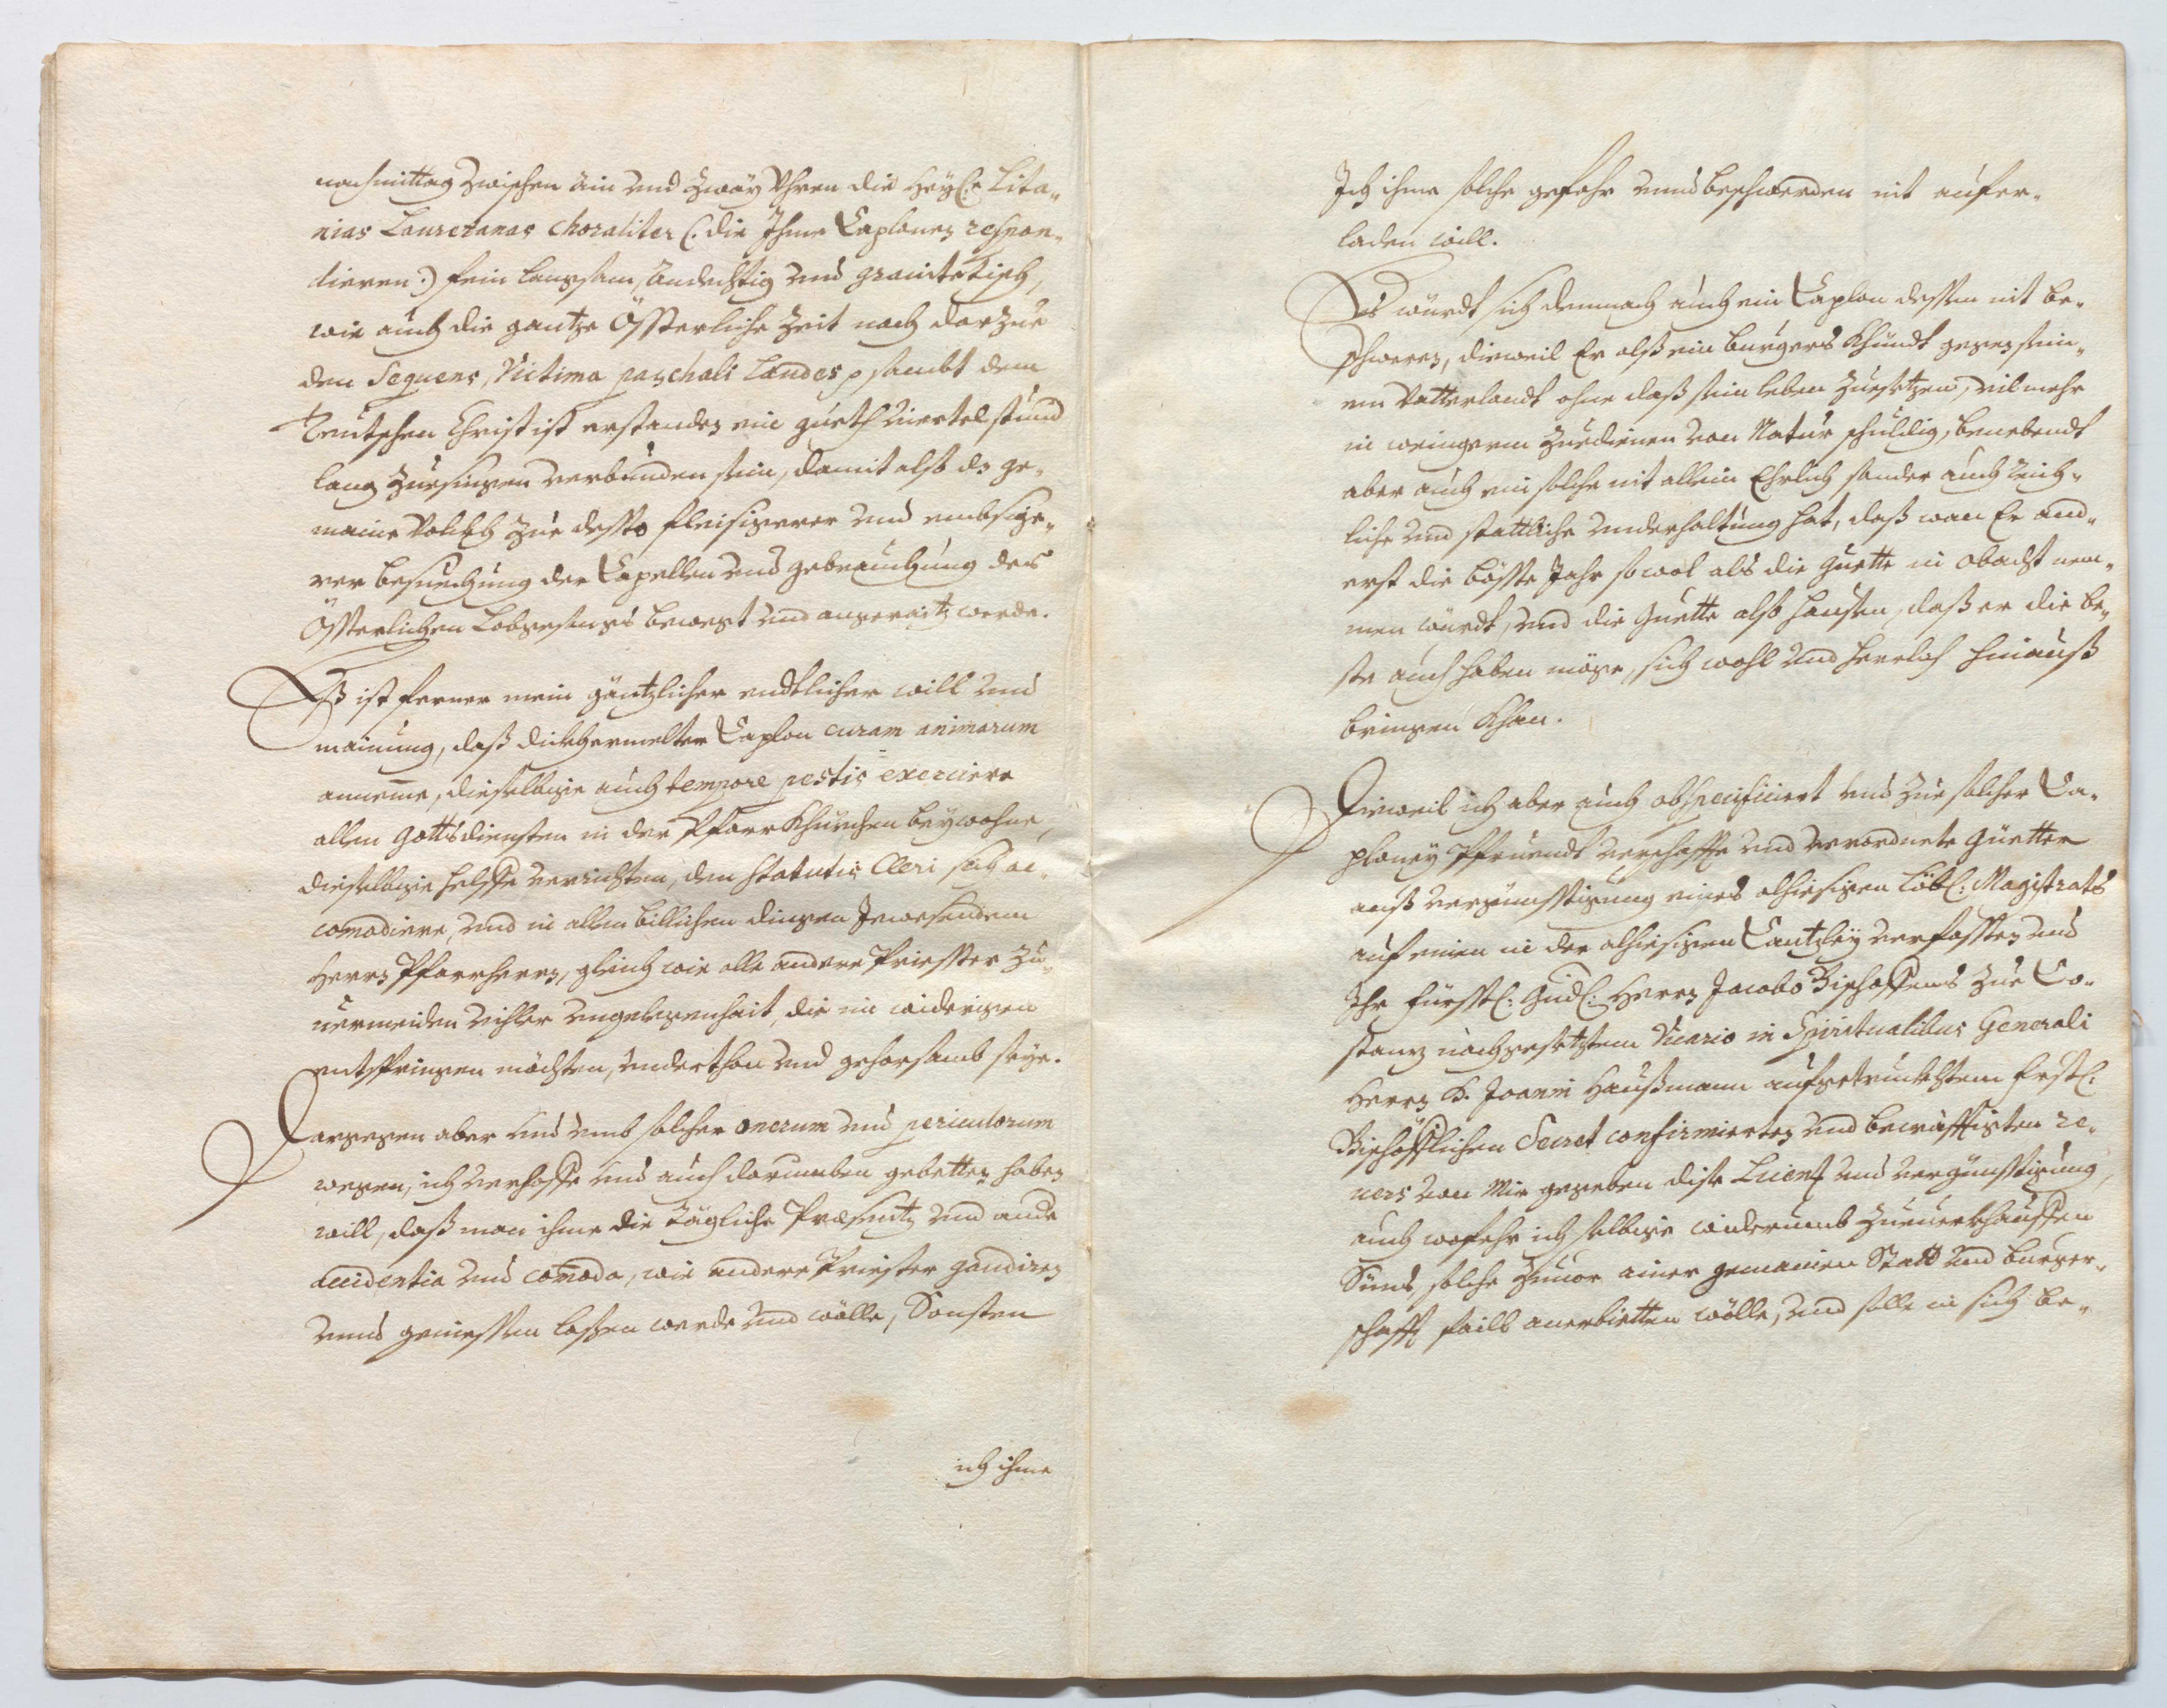 nachmittag zwischen ain und zwäy Uhren die Heyl: Lita-
nias Lauretanas choraliter (: die Ihme Caplonen respon-
dieren :) fein langsam, andechtig und grauitetisch,
wie auch die gantze Österliche Zeit nach darzue
den Sequens, Victima paschali Laudes p sambt dem
Teutschen Christ ist erstanden ein gueth viertelstund
lang zuesingen verbunden sein, damit also ds ge-
maine Volckh zue desto fleisigerer und embsige-
rer besuechung der Capellen und gebrauchung des
Österlichen Lobgesangs bewegt und angeraitzt werde.
Eß ist ferner mein gäntzlicher endtlicher will und
mainung, daß dickhermelter Caplon curam animarum
anneme, dieselbige auch tempore pestis exerciere
allen Gottsdiensten in der Pfarr Khürchen beywohne,
dieselbige helffe verrichten, den statutis Cleri sich ac-
comodiere, und in allen billichen dingen Jewesendem
Herrn Pfarrherrn, gleich wie alle andere Priester zu-
uermeiden viller ungelegenhait, die im widerigen
entspringen möchten, underthon und gehorsamb seye.
Dargegen aber und umb solcher onerum und periculorum
wegen, ich verhoffe und auch darumben gebetten haben
will, daß man ihme die tägliche Præsentz und ande
accidentia und comoda, wie andere Priester gaudiren
unnd geniessen lassen werde und wölle, Sonsten
ich ihme
Ich ihme solche gefahr unnd beschwerden nit aufer-
laden will.
Es würdt sich demnach auch ein Caplon dessen nit be-
schweren, dieweil Er alß ein burgers Khündt gegen sein-
em Vatterlandt ohne daß sein leben zuesetzen, vil mehr
in weingerm zuedienen von Natur schuldig, benebendt
aber auch ein solche nit allein Ehrlich sonder auch reich-
liche und stattliche underhaltung hat, daß wan Er and-
erst die böste Jahr sowol als die guette in obacht nem-
men würdt, und die guette also hausen, daß er die be-
ste auch haben möge, sich wohl und herrlich hinauß
bringen khan.
Dieweil ich aber auch obspecificiert und zue solcher Ca-
ploney Pfruendt verschaffe und verordnete Güetter
auß vergünstigung eines alhiesigen Löbl: Magistrats
auf einen in der alhiesigen Cantzley verfasten und
Ihr Fürstl: Gndl: Herrn Jacobo Bischoffens zue Co-
stanz nachgesetztem Vicario in Spiritualibus Generali
Herrn D. Joanni Haußmann aufgetruckhtem Frstl:
Bischöfflichen Secret confirmierten und becräfftigten re-
uers von Mir gegeben diße Licenz und vergünstigung,
auch wofehr ich selbige widerumb zuuerkhauffen
Sünd, solche zuuor ainer gemainen Statt und burger-
schafft failb anerbietten wölle, und solle in sich be-